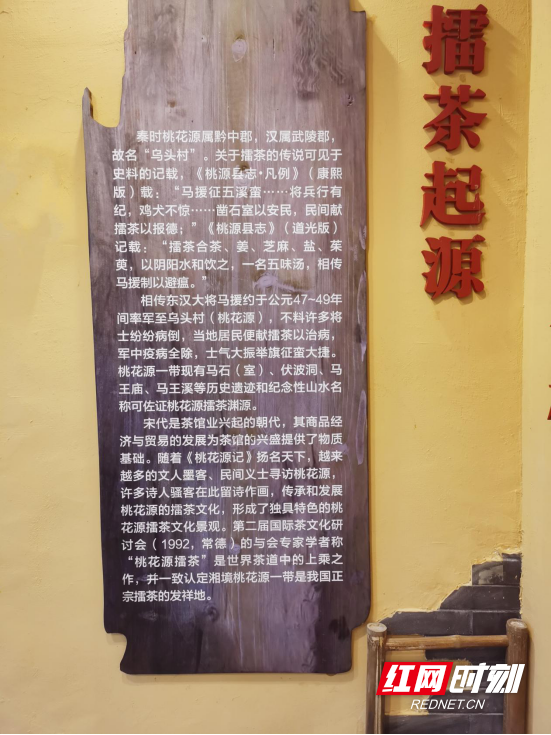 擂茶起源
秦时桃花源属黔中郡，汉属武陵郡，
故名“乌头村”。关于擂茶的传说可见于
史料的记载，《桃源县志·凡例》（康熙
版）载：“马援征五溪蛮……将兵行有
纪，鸡犬不惊……凿石室以安民，民间献
擂茶以报德；”《桃源县志》（道光版）
记载：“擂茶合茶、姜、芝麻、盐、茱
萸，以阴阳水和饮之，一名五味汤，相传
马援制以避瘟。”
相传东汉大将马援约于公元47~49年
间率军至乌头村（桃花源），不料许多将
士纷纷病倒，当地居民便献擂茶以治病，
军中疫病全除，士气大振举旗征蛮大捷。
桃花源一带现有马石（室）、伏波洞、马
王庙、马王溪等历史遗迹和纪念性山水名
称可佐证桃花源擂茶渊源。
宋代是茶馆业兴起的朝代，其商品经
济与贸易的发展为茶馆的兴盛提供了物质
基础。随着《桃花源记》扬名天下，越来
越多的文人墨客、民间义士寻访桃花源，
许多诗人骚客在此留诗作画，传承和发展
桃花源的擂茶文化，形成了独具特色的桃
花源擂茶文化景观。第二届国际茶文化研
讨会（1992，常德）的与会专家学者称
“桃花源擂茶”是世界茶道中的上乘之
作，并一致认定湘境桃花源一带是我国正
宗擂茶的发祥地。
红网时刻
REDNET.CN